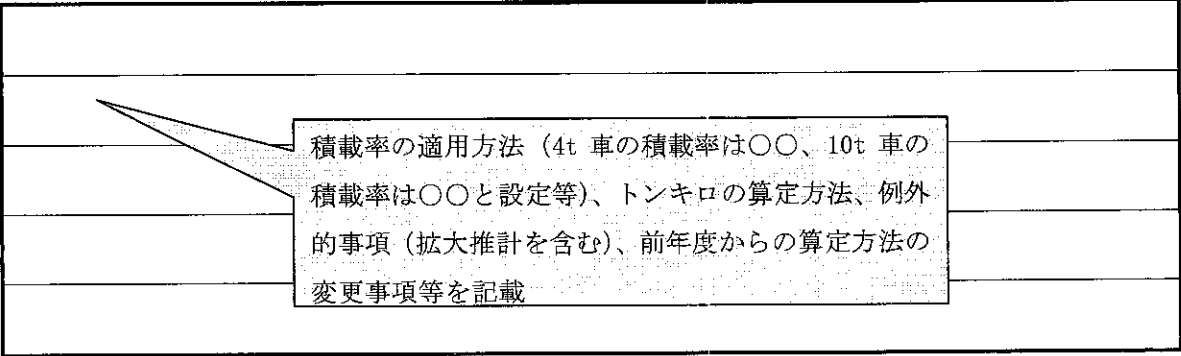 積載率の適用方法（4t 車の積載率は〇〇、10t 車の
積載率は〇〇と設定等）、トンキロの算定方法、例外
的事項（拡大推計を含む）、前年度からの算定方法の
変更事項等を記載